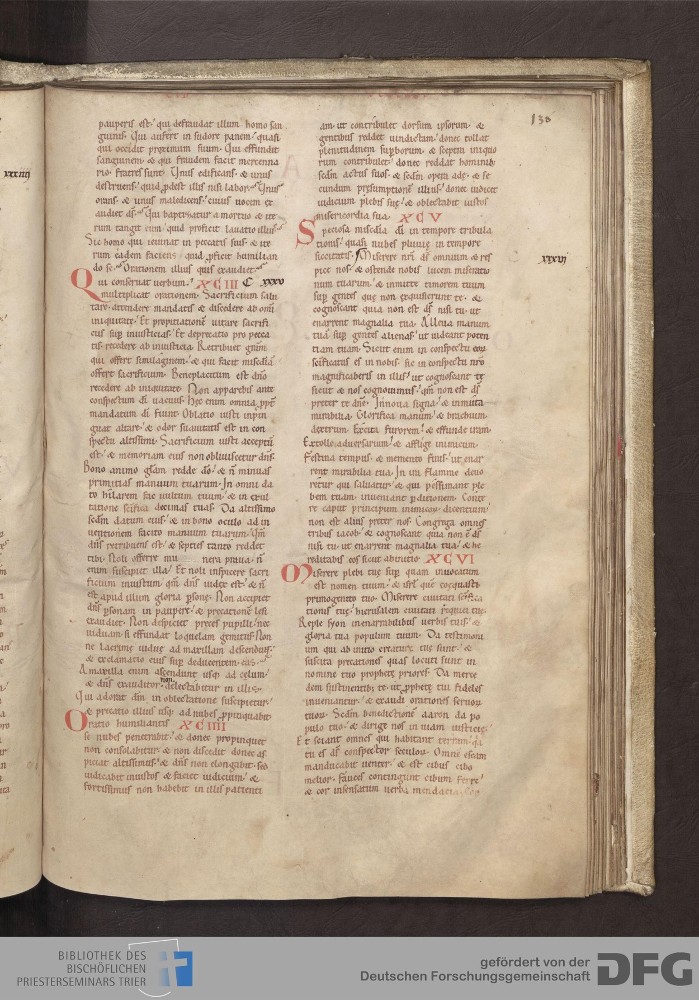 138
xxxiiij
pauperis est· qui defraudat illum homo san
guinis· Qui aufert in sudore panem· quasi
qui occidit proximum suum· Qui effundit
sanguinem· & qui fraudem facit mercenna
rio· fratres sunt· Unus edificans· & unus
destruens· quid pdest illis nisi labor· Unus
orans· & unus maledicens· cuius uocem ex
audiet ds· Qui baptizatur a mortuo & ite
rum tangit eum· quid proficit lauatio illius·
Sic homo qui ieiunat in peccatis suis· & ite
rum eadem faciens· quid pficit humilian
do se· Orationem illius quis exaudiet·
Qui conseruat uerbum· XCIII C xxxv
multiplicat orationem· Sacrificium salu
tare· attendere mandatis· & discedere ab omi
iniquitate· Et propitiationem litare sacrifi
cii sup iniusticias· & deprecatio pro pecca
tis recedere ab iniusticia· Retribuet gram
qui offert similaginem· & qui facit miscdiam
offert sacrificium· Beneplacitum est dno
recedere ab iniquitate· Non apparebis ante
conspectum di uacuus· Hec enim omnia ppt
mandatum di fiunt· Oblatio iusti inpin
guat altare· & odor suauitatis est in con
spectu altissimi· Sacrificium iusti acceptu
est· & memoriam eius non obliuiscetur dns·
Bono animo glam redde do· & n minuas
primitias manuum tuarum· In omni da
to hilarem fac uultum tuum· & in exul
tatione scifica decimas tuas· Da altissimo
scdm datum eius· & in bono oculo ad in
uentionem facito manuum tuarum· qm
dns retribuens est· & septies tanto reddet
tibi· Noli offerre mu nera praua· n
enim suscipiet illa· Et noli inspicere sacri
ficium iniustum· qm dns iudex est· & n
est apud illum gloria psone· Non accipiet
dns psonam in paupere· & precatione lesi
exaudiet· Non despiciet preces pupilli· nec
uiduam si effundat loquelam gemitus· Non
ne lacrime uidue ad maxillam descendunt·
& exclamatio eius sup deducentem eas·
A maxilla enim ascendunt usq ad celum·
& dns exauditor non delectabitur in illis·
Qui adorat dm in oblectatione suscipietur·
& precatio illius usq ad nubes ppinquabit·
Oratio humiliantis XCIIII
se nubes penetrabit· & donec propinquet
non consolabitur· & non discedit donec as
piciat altissimus· & dns non elongabit· sed
iudicabit iniustos· & faciet iudicium· &
fortissimus non habebit in illis patienti
am· ut contribulet dorsum ipsorum· &
gentibus reddet uindictam· donec tollat
plenitudinem supborum· & sceptra iniquo
rum contribulet· donec reddat hominib
scdm actus suos· & scdm opera ade· & se
cundum presumptionem illius· donec iudicet
iudicium plebis sue· & oblectabit iustos
misericordia sua· XCV
Speciosa misedia di in tempore tribula
tionis· quasi nubes pluuie in tempore
siccitatis· Miserere nri ds omnium· & res
pice nos· & ostende nobis lucem miseratio
num tuarum· & inmitte timorem tuum
sup gentes que non exquisierunt te· &
cognoscant quia non est ds nisi tu· ut
enarrent magnalia tua· Alleua manum
tua sup gentes alienas· ut uideant poten
tiam tuam· Sicut enim in conspectu eoru
scificatus es in nobis· sic in conspectu nro
magnificaberis in illis· ut cognoscant te
sicut & nos cognouimus· qm non est ds
preter te dne· Innoua signa· & inmuta
mirabilia· Glorifica manum· & brachium
dextrum· Excita furorem· & effunde iram·
Extolle aduersarium· & afflige inimicum·
Festina tempus· & memento finis· ut enar
rent mirabilia tua· In ira flamme deuo
retur qui saluatur· & qui pessimant ple
bem tuam· inueniant pditionem· Conte
re caput principum inimicoru· dicentium·
non est alius preter nos· Congrega omnes
tribus iacob· & cognoscant quia non e ds
nisi tu· ut enarrent magnalia tua· & he
reditabis eos sicut ab initio· XCVI
Miserere plebi tue sup quam inuocatum
est nomen tuum· & isrl que coequasti
primogenito tuo· Miserere ciuitati scifica
tionis tue· hierusalem ciuitati requiei tue·
Reple syon inenarrabilibus uerbis tuis· &
gloria tua populum tuum· Da testimoni
um qui ab initio creature tue sunt· &
suscita precationes quas locuti sunt in
nomine tuo prophete priores· Da merce
dem sustinentibus te· ut pphete tui fideles
inueniantur· & exaudi orationes seruoru
tuoru· Scdm benedictione aaron da po
pulo tuo· & dirige nos in uiam iusticie·
Et sciant omnes qui habitant terram· qa
tu es ds conspector seculoru· Omne escam
manducabit uenter· & est cibus cibo
melior· fauces contingunt cibum fere·
& cor insensatum uerba mendacia·
xxxvj
BIBLIOTHEK DES
BISCHÖFLICHEN
PRIESTERSEMINARS TRIER
gefördert von der
Deutschen Forschungsgemeinschaft
DFG